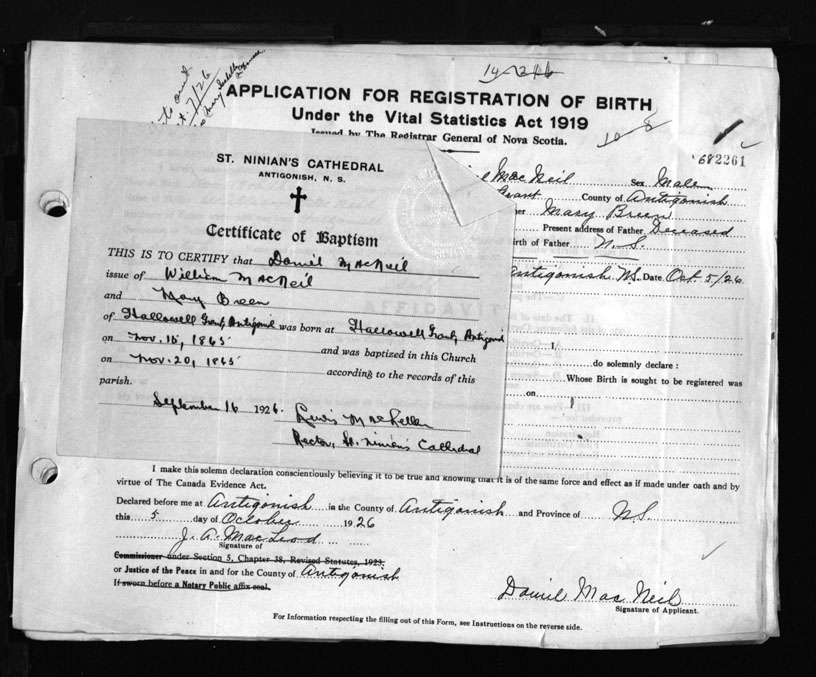 14-216
APPLICATION FOR REGISTRATION OF BIRTH
Under the Vital Statistics Act 1919
Issued by The Registrar General of Nova Scotia.
10-8
682261
ST. NINIAN'S CATHEDRAL
ANTIGONISH, N. S.
Certificate of Baptism
THIS IS TO CERTIFY that Daniel MacNeil
issue of William MacNeil
and Mary Breen
of Hallowell Grant, Antigonish was born at Hallowell Grant, Antigonish
on Nov. 15, 1865 and was baptized in this Church
on Nov. 20, 1865 according to the records of this
parish.
September 16 1926.
Lewis MacLellan
Rector, St. Ninian's Cathedral
MacNeil Sex Male
Grant County of Antigonish
Mary Breen
Present address of Father Deceased
Birth of Father N.S.
Antigonish N.S. Date Oct. 5/26
I,
do solemnly declare :
Whose Birth is sought to be registered was
on
I make this solemn declaration conscientiously believing it to be true and knowing that it is of the same force and effect as if made under oath and by
virtue of The Canada Evidence Act.
Declared before me at Antigonish in the County of Antigonish and Province of N.S.
this 5 day of October 1926
J. A. MacLeod
Signature of
Commissioner under Section 5, Chapter 38, Revised Statutes, 1923,
or Justice of the Peace in and for the County of Antigonish
If sworn before a Notary Public affix seal.
Daniel MacNeil
Signature of Applicant.
For Information respecting the filling out of this Form, see Instructions on the reverse side.